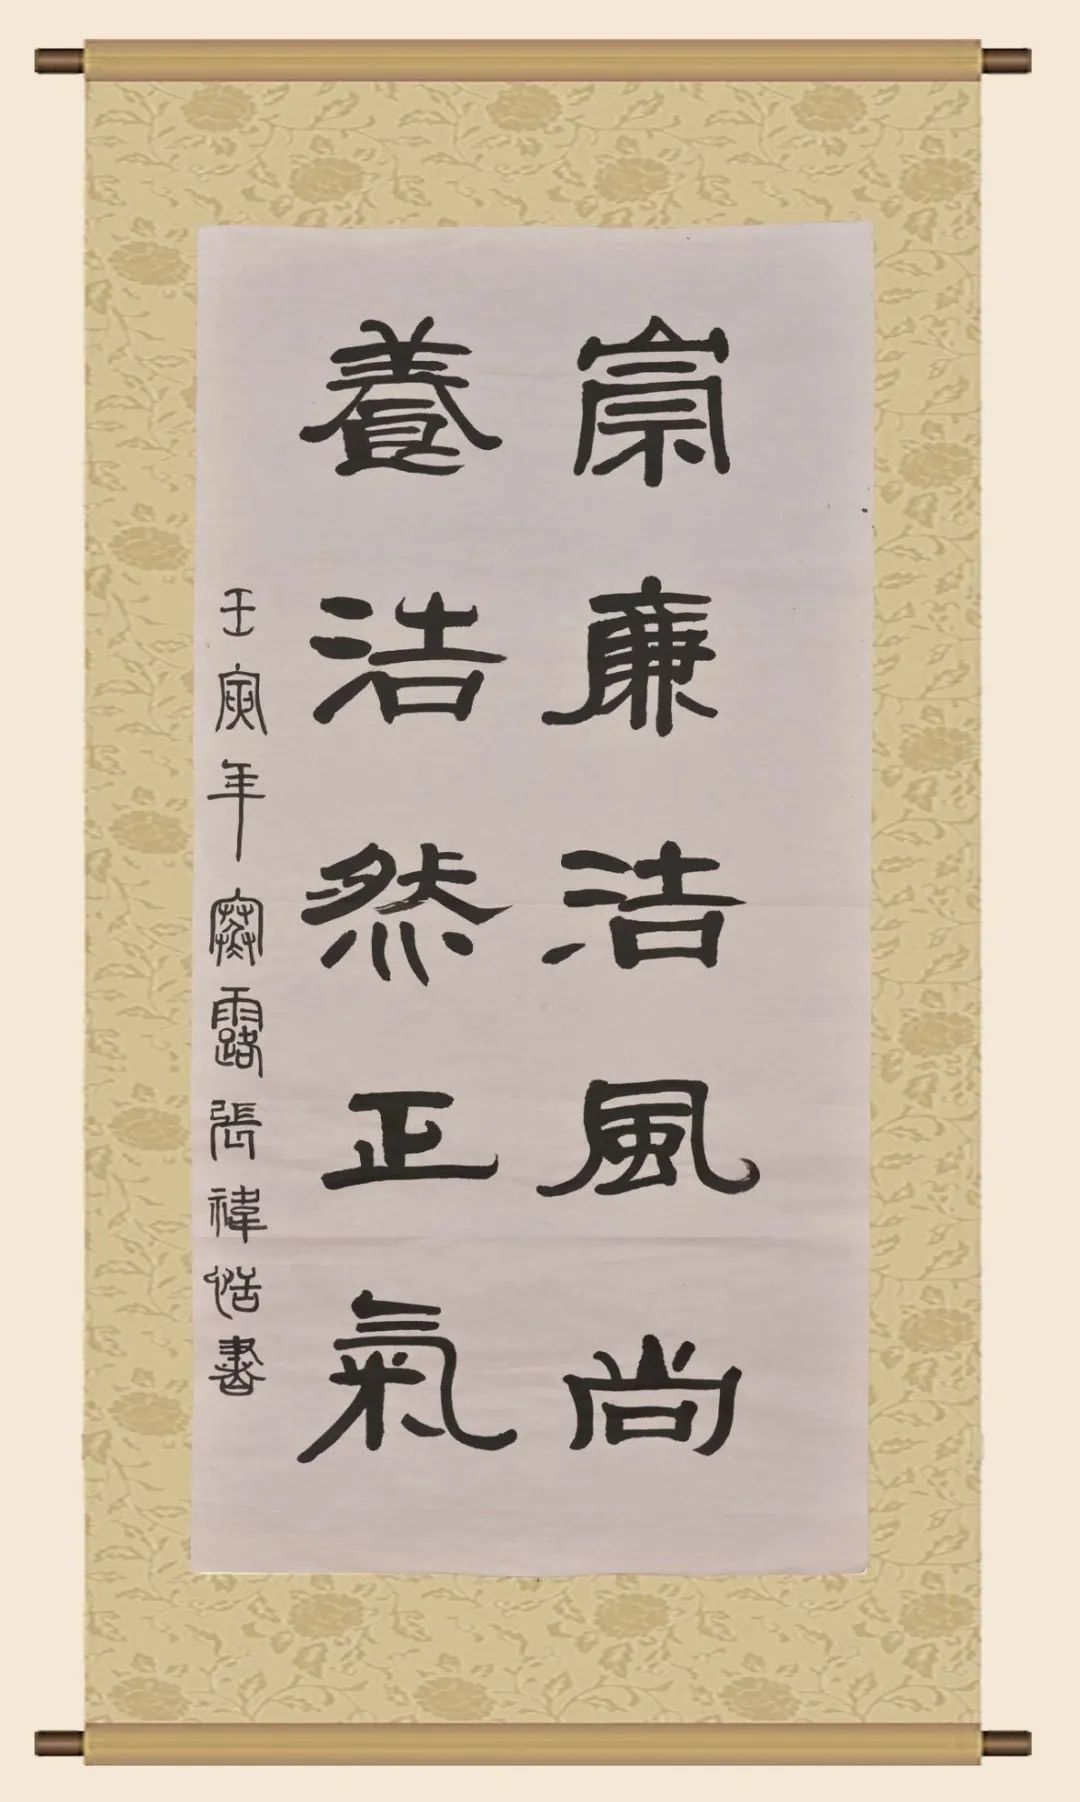 崇廉洁風尚
養洁然正氣
壬寅年寒露張禕恬書